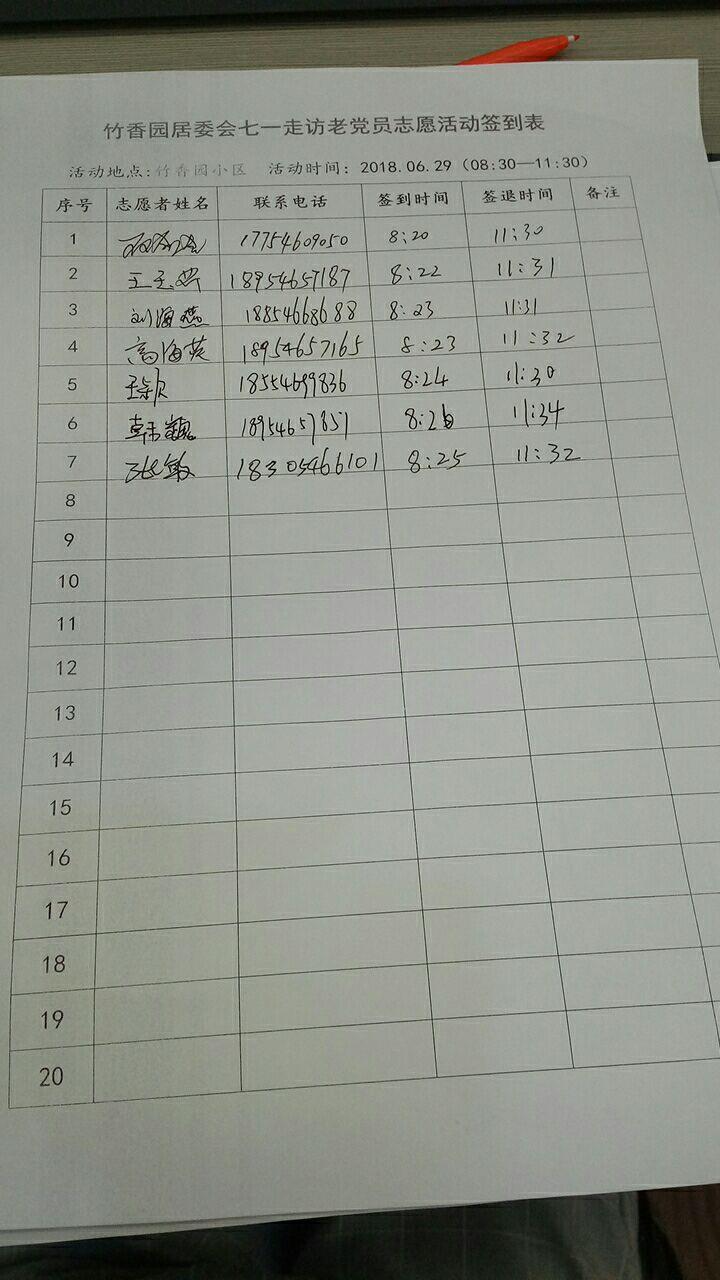 竹香园居委会七一走访老党员志愿活动签到表
活动地点:竹香园小区 活动时间: 2018.06.29 (08:30—11:30)
序号 志愿者姓名 联系电话 签到时间 签退时间 备注
1 17754609050 8:20 11:30
2 18954657187 8:22 11:31
3 刘海燕 18854668688 8:23 11:31
4 高海英 18954657165 8:23 11:32
5 18554699836 8:24 11:30
6 韩巍 18954657857 11:34
7 张敏 18305466101 8:25 11:32
8
9
10
11
12
13
14
15
16
17
18
19
20